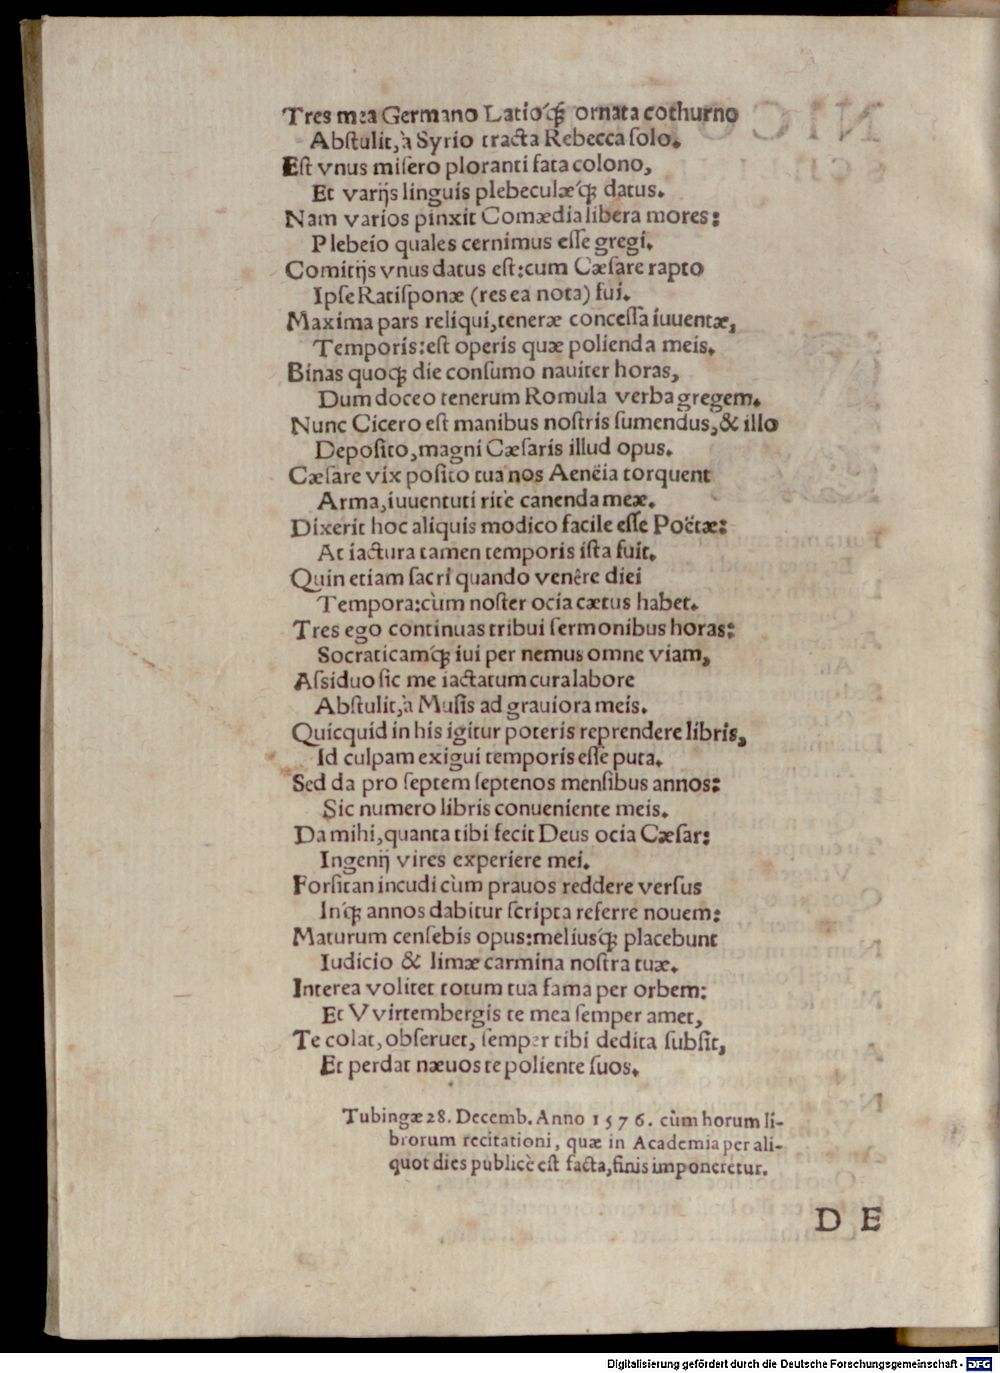 Tres mea Germano Latioq́; ornata cothurno
Abſtulit, à Syrio tracta Rebecca ſolo.
Eſt vnus miſero ploranti fata colono,
Et varijs linguis plebeculæq́; datus.
Nam varios pinxit Comædia libera mores:
Plebeio quales cernimus eſſe gregi.
Comitijs vnus datus eſt: cum Cæſare rapto
Ipſe Ratiſponæ (res ea nota) fui.
Maxima pars reliqui, teneræ conceſſa iuuentæ,
Temporis: eſt operis quæ polienda meis.
Binas quoq; die conſumo nauiter horas,
Dum doceo tenerum Romula verba gregem.
Nunc Cicero eſt manibus noſtris ſumendus, & illo
Depoſito, magni Cæſaris illud opus.
Cæſare vix poſito tua nos Aenëia torquent
Arma, iuuentuti ritè canenda meæ.
Dixerit hoc aliquis modico facile eſſe Poëtæ:
At iactura tamen temporis iſta fuit.
Quin etiam ſacri quando venêre diei
Tempora: cùm noſter ocia cætus habet.
Tres ego continuas tribui ſermonibus horas:
Socraticamq́; iui per nemus omne viam,
Aſsiduo ſic me iactatum cura labore
Abſtulit, à Muſis ad grauiora meis.
Quicquid in his igitur poteris reprendere libris,
Id culpam exigui temporis eſſe puta.
Sed da pro ſeptem ſeptenos menſibus annos:
Sic numero libris conueniente meis.
Da mihi, quanta tibi fecit Deus ocia Cæſar:
Ingenij vires experiere mei.
Forſitan incudi cùm prauos reddere verſus
Inq́; annos dabitur ſcripta referre nouem:
Maturum cenſebis opus: meliusq́; placebunt
Iudicio & limæ carmina noſtra tuæ.
Interea volitet totum tua fama per orbem:
Et VVirtembergis te mea ſemper amet,
Te colat, obſeruet, ſemper tibi dedita ſubſit,
Et perdat næuos te poliente ſuos.
Tubingæ 28. Decemb. Anno 1576. cùm horum li-
brorum recitationi, quæ in Academia per ali-
quot dies publicè eſt facta, finis imponeretur.
D E
Digitalisierung gefördert durch die Deutsche Forschungsgemeinschaft - DFG